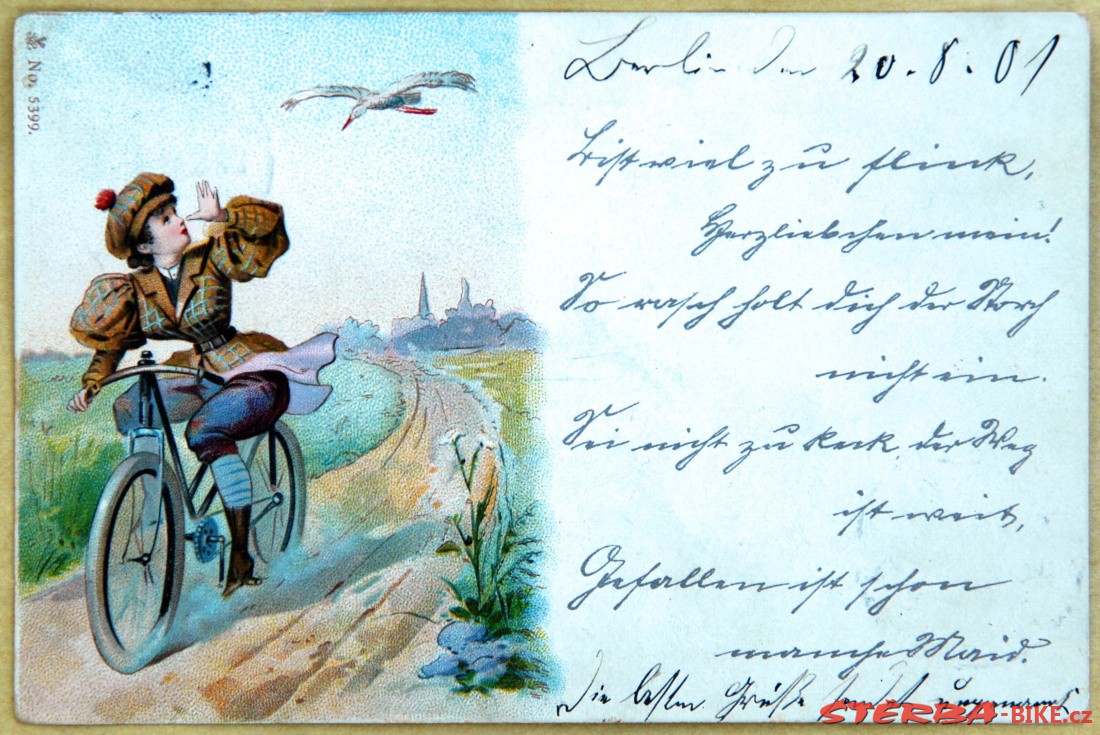 No. 5399.
Berlin den 20.8.01
Bist viel zu flink,
Herzliebchen mein!
So rasch holt dich der Storch
nicht ein.
Sei nicht zu keck, der Weg
ist weit,
Gefallen ist schon
manche Maid.
Die besten Grüße sendet
STERBA-BIKE.cz